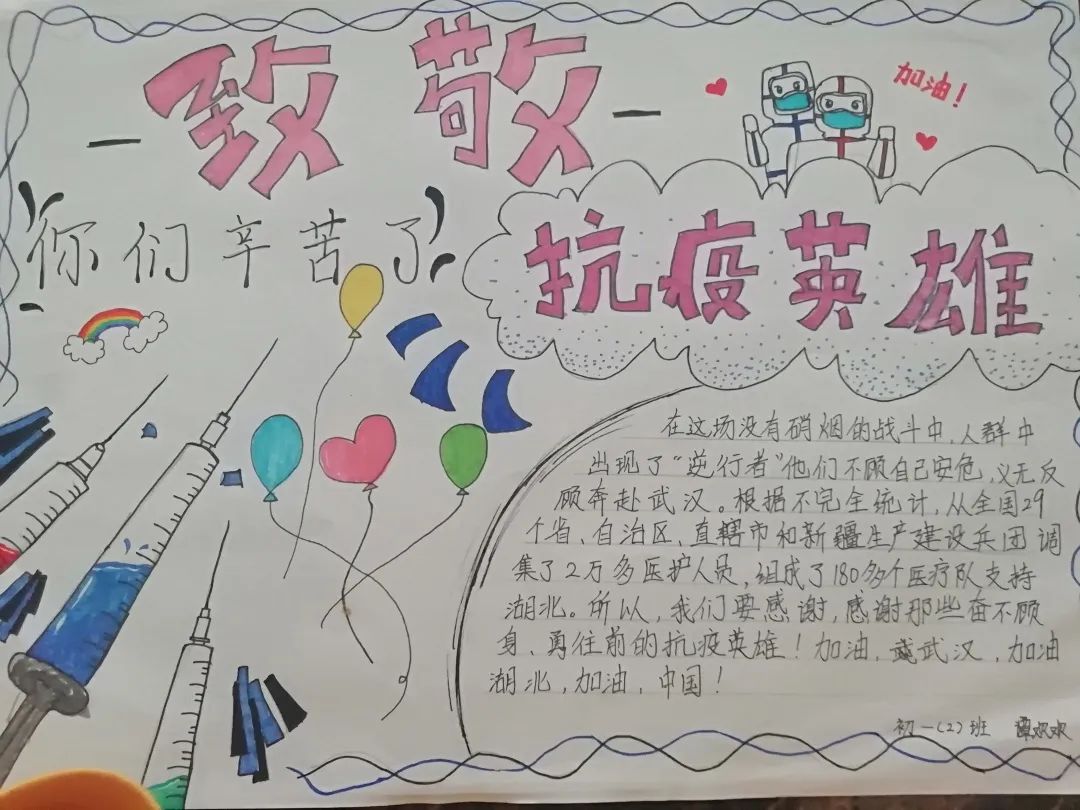 致敬
加油！
你们辛苦了
抗疫英雄
在这场没有硝烟的战斗中，人群中
出现了“逆行者”他们不顾自己安危，义无反
顾奔赴武汉。根据不完全统计，从全国29
个省、自治区、直辖市和新疆生产建设兵团调
集了2万多医护人员，组成了180多个医疗队支持
湖北。所以，我们要感谢，感谢那些奋不顾
身、勇往前的抗疫英雄！加油，武汉，加油
湖北，加油，中国！
初一（2）班 谭欢欢